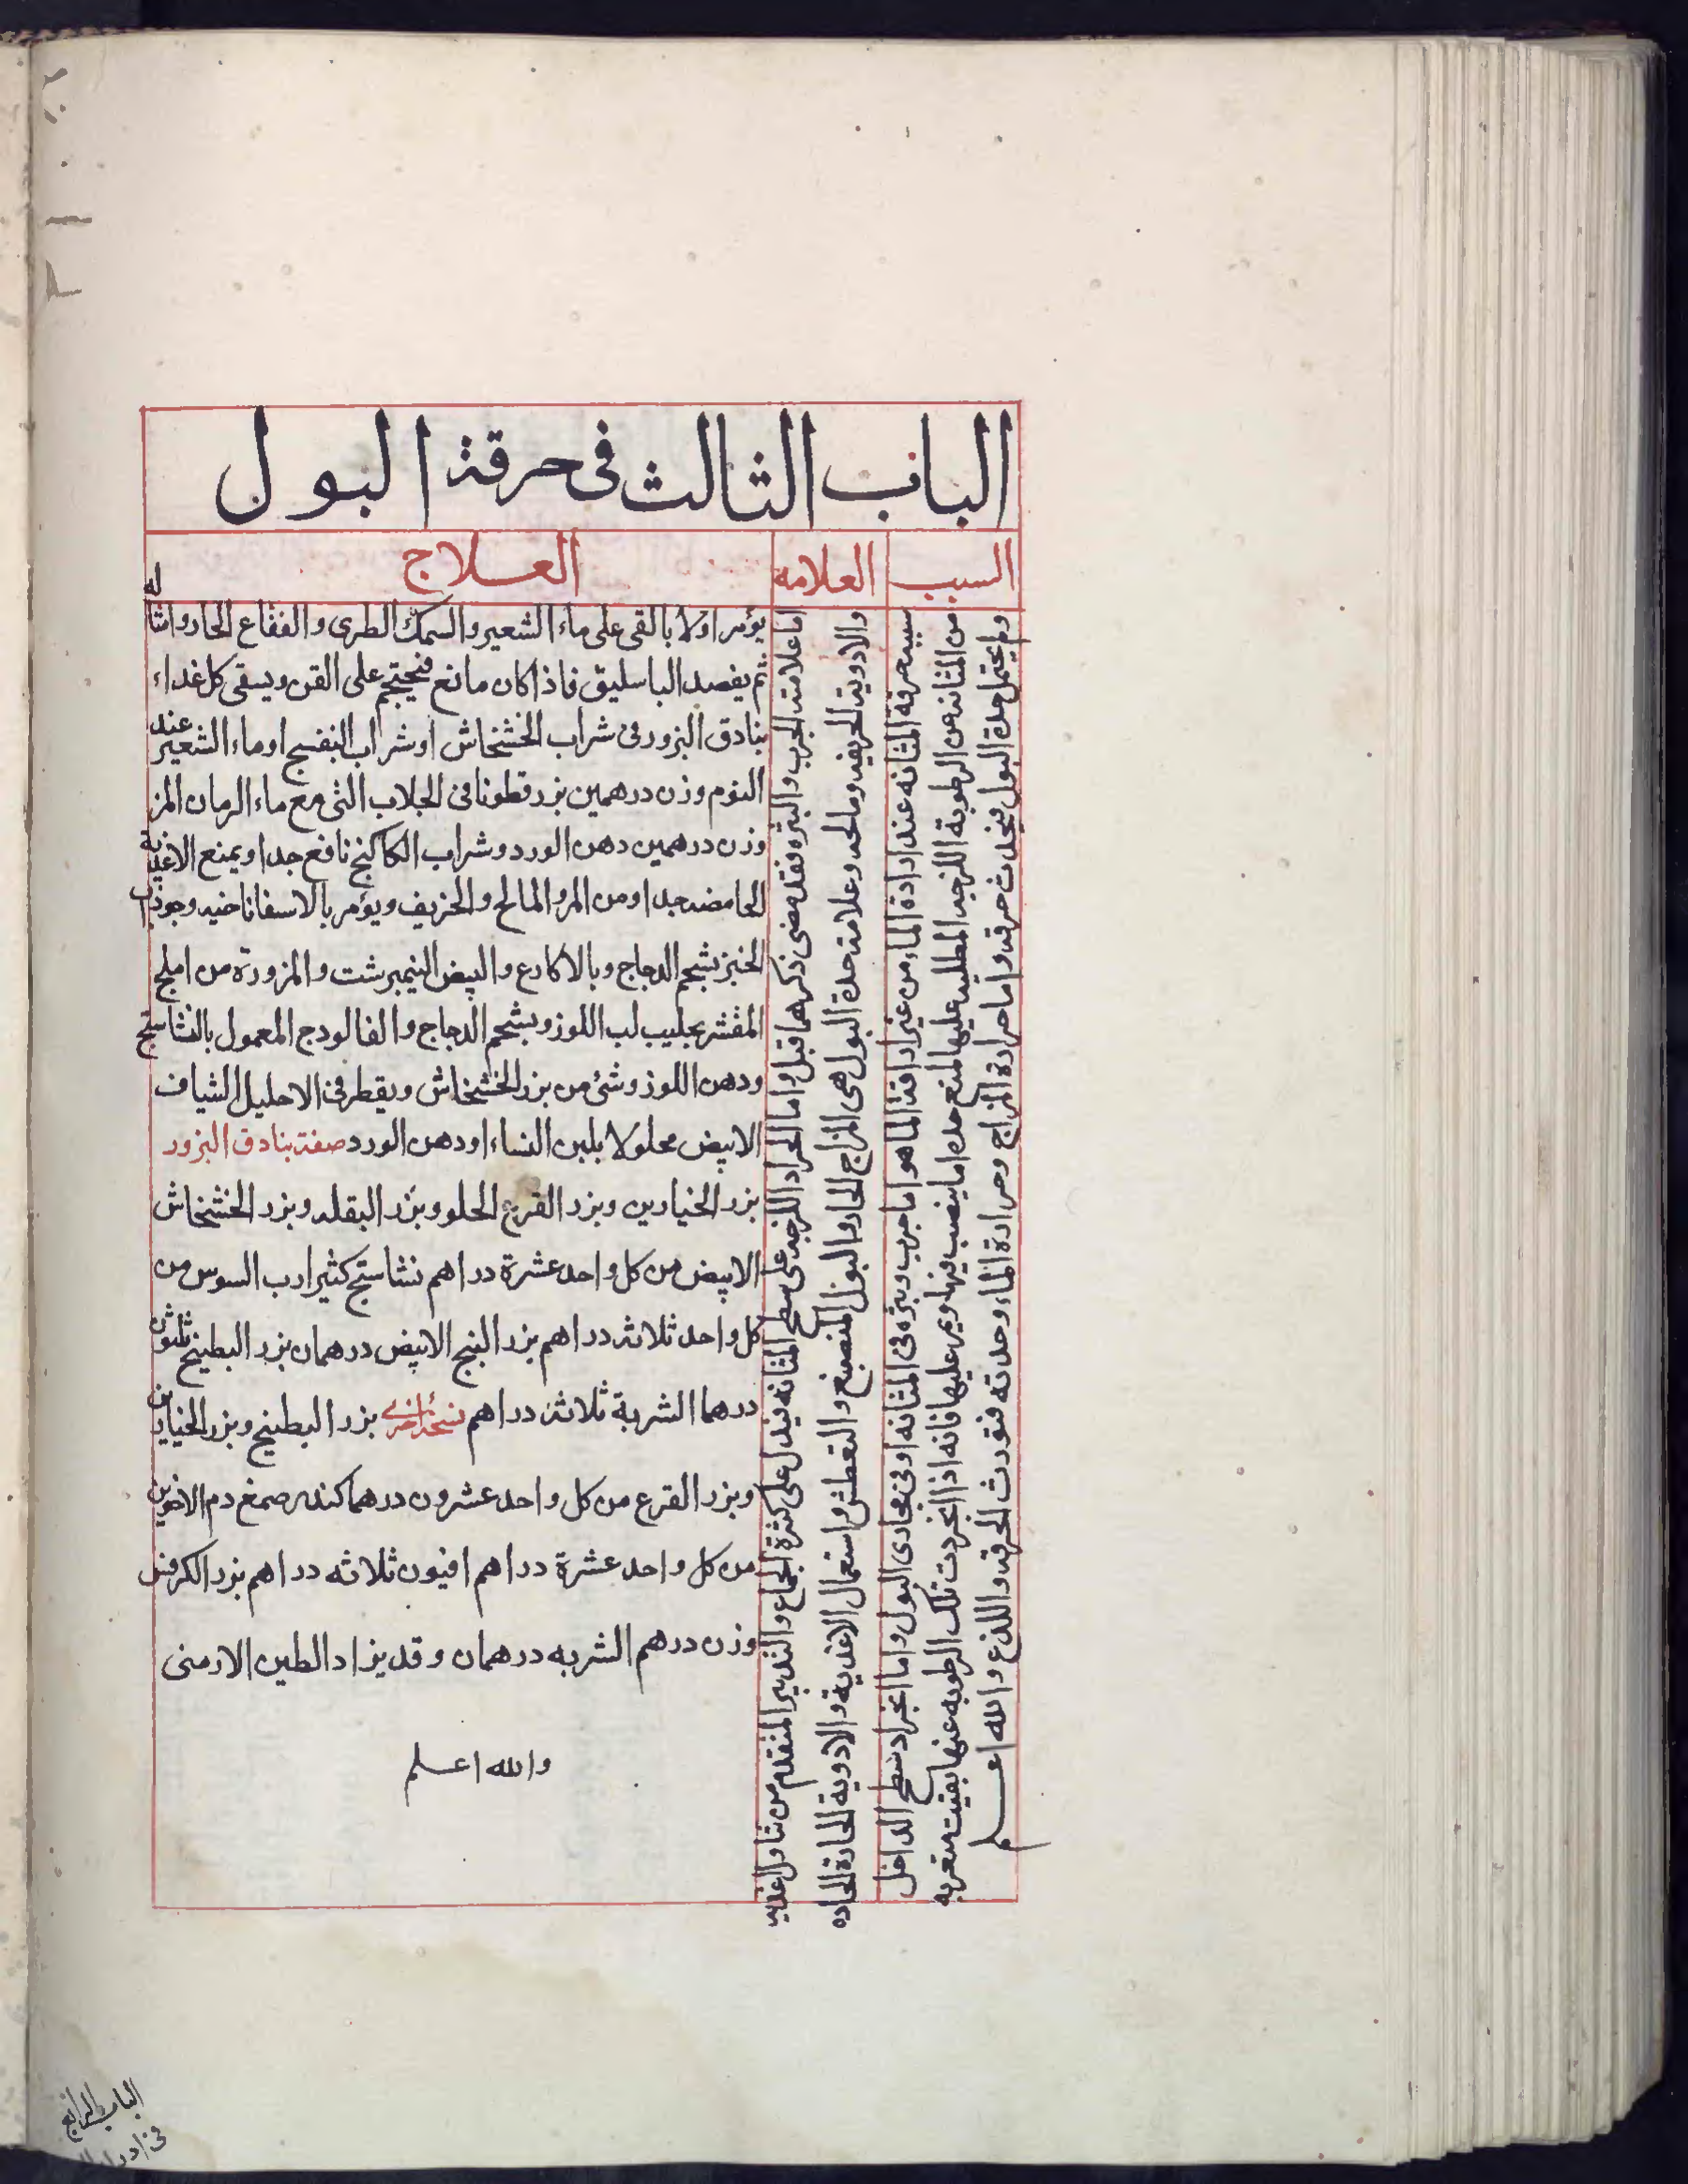 الباب الثالث فى حرقة البول
السبب
العلامه
العلاج
سببه حرقة المثانه عند ارادة الماء من غير اراقة الما هو اما جرب وبثره فى المثانه او فى مجارى البول واما انجراد سطح الداخل
من المثانه عن الرطوبة اللزجه المطليه عليها لمنع حده اما ينصب فيها ويمر عليها فانه اذا انجردت تلك الرطوبه عنها بقيت متعريه
ولم يحتمل حدة البول فيحدث حرقه واما حرارة المزاج وحرارة الماء وحدته فتورث الحرقه واللذع والله اعلم
اما علامته الجرب والبثره فقد مضى ذكرهما قبل واما الجراد اللزجه على سطح المثانه فيدل على كثرة الجماع والتدبير المتقدم من تناول الاغذيه
والادوية الحريفه ومالحه وعلامته حدة البول هى المزاج الحار والبول المنصبغ والتعطش واستعمال الاغذية والادوية الحارة الحاده
يؤمر اولا بالقى على ماء الشعير والسمك الطرى والفقاع الحار وامثا له
ثم يفصد الباسليق فاذا كان مانع فيحتجم على القن ويسقى كل غداء
بنادق البزور فى شراب الخشخاش او شراب البنفسج او ماء الشعير عند
النوم وزن درهمين بزر قطونا فى الجلاب الثى مع ماء الرمان المز
وزن درهمين دهن الورد وشراب الكاكنج نافع جدا ويمنع الاغذية
الحامضه جدا ومن المر والمالح والحريف ويؤمر بالاسفاناخيه وجوذاب
الخبز بشحم الدجاج وبالاكارع والبيض النيمبرشت والمزورة من املج
المقشر بحليب لب اللوز وبشحم الدجاج والفالودج المعمول بالنشاستج
ودهن اللوز وشئ من بزر الخشخاش ويقطر فى الاحليل الشياف
الابيض محلولا بلبن النساء او دهن الورد صفة بنادق البزور
بزر الخيارين وبزر القرع الحلو وبزر البقله وبزر الخشخاش
الابيض من كل واحد عشرة دراهم نشاستج كثيرا رب السوس من
كل واحد ثلاثه دراهم بزر البنج الابيض درهمان بزر البطيخ ثلثون
درهما الشربة ثلاثه دراهم نسخه اخرى بزر البطيخ وبزر الخيارين
وبزر القرع من كل واحد عشرون درهما كندر صمغ دم الاخوين
من كل واحد عشرة دراهم افيون ثلاثه دراهم بزر الكرفس
وزن درهم الشربه درهمان وقد يزاد الطين الارمنى
والله اعلم
الباب الرابع